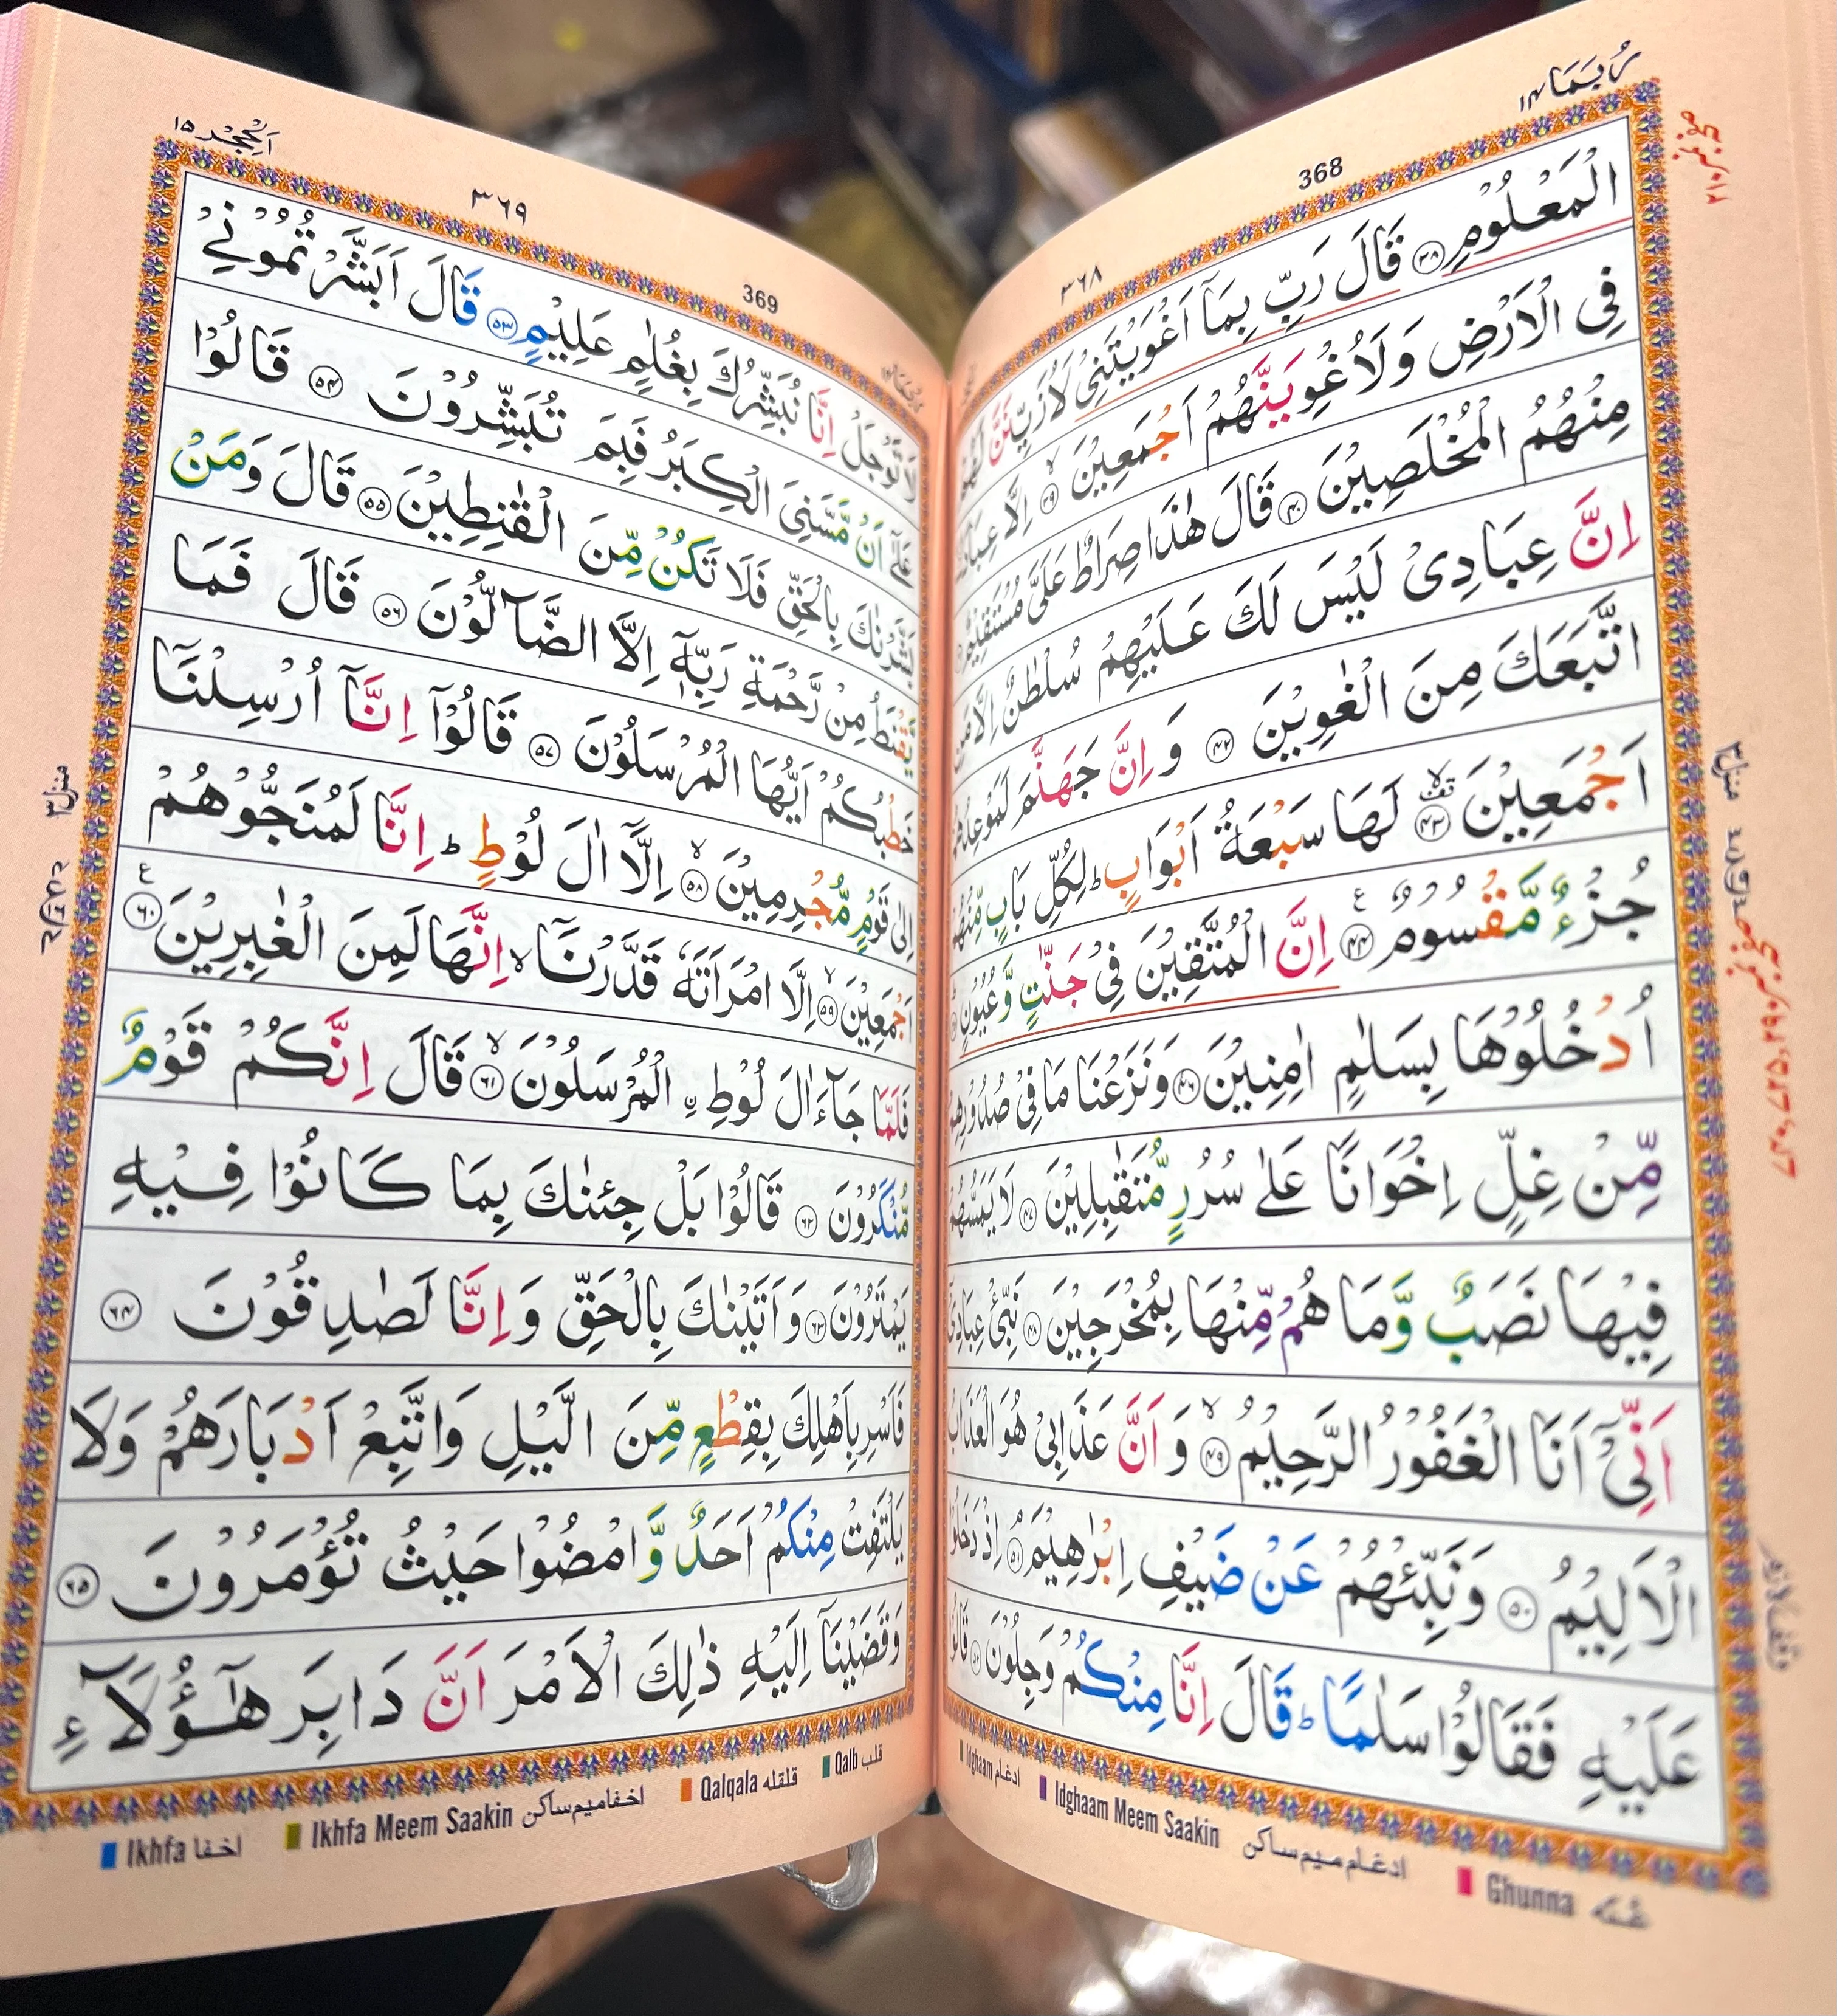 رُبَمَا ١٤
368
٣٦٨
الْمَعْلُوْمِ ﴿٣٨﴾ قَالَ رَبِّ بِمَاۤ اَغْوَيْتَنِيْ لَاُزَيِّنَنَّ لَهُمْ
فِي الْاَرْضِ وَلَاُغْوِيَنَّهُمْ اَجْمَعِيْنَ ﴿٣٩﴾ اِلَّا عِبَادَكَ
مِنْهُمُ الْمُخْلَصِيْنَ ﴿٤٠﴾ قَالَ هٰذَا صِرَاطٌ عَلَيَّ مُسْتَقِيْمٌ
اِنَّ عِبَادِيْ لَيْسَ لَكَ عَلَيْهِمْ سُلْطٰنٌ اِلَّا مَنِ
اتَّبَعَكَ مِنَ الْغٰوِيْنَ ﴿٤٢﴾ وَاِنَّ جَهَنَّمَ لَمَوْعِدُهُمْ
اَجْمَعِيْنَ ﴿٤٣﴾ لَهَا سَبْعَةُ اَبْوَابٍ ؕ لِكُلِّ بَابٍ مِّنْهُمْ
جُزْءٌ مَّقْسُوْمٌ ﴿٤٤﴾ اِنَّ الْمُتَّقِيْنَ فِيْ جَنّٰتٍ وَّعُيُوْنٍ
اُدْخُلُوْهَا بِسَلٰمٍ اٰمِنِيْنَ ﴿٤٦﴾ وَنَزَعْنَا مَا فِيْ صُدُوْرِهِمْ
مِّنْ غِلٍّ اِخْوَانًا عَلٰى سُرُرٍ مُّتَقٰبِلِيْنَ ﴿٤٧﴾ لَا يَمَسُّهُمْ
فِيْهَا نَصَبٌ وَّمَا هُمْ مِّنْهَا بِمُخْرَجِيْنَ ﴿٤٨﴾ نَبِّئْ عِبَادِيْۤ
اَنِّيْۤ اَنَا الْغَفُوْرُ الرَّحِيْمُ ﴿٤٩﴾ وَاَنَّ عَذَابِيْ هُوَ الْعَذَابُ
الْاَلِيْمُ ﴿٥٠﴾ وَنَبِّئْهُمْ عَنْ ضَيْفِ اِبْرٰهِيْمَ ﴿٥١﴾ اِذْ دَخَلُوْا
عَلَيْهِ فَقَالُوْا سَلٰمًا ؕ قَالَ اِنَّا مِنْكُمْ وَجِلُوْنَ ﴿٥٢﴾ قَالُوْا
منزل ٣
Idghaam ادغام
Idghaam Meem Saakin ادغام ميم ساكن
Ghunna غنه
اَلْحِجْر ١٥
٣٦٩
369
لَا تَوْجَلْ اِنَّا نُبَشِّرُكَ بِغُلٰمٍ عَلِيْمٍ ﴿٥٣﴾ قَالَ اَبَشَّرْتُمُوْنِيْ
عَلٰۤى اَنْ مَّسَّنِيَ الْكِبَرُ فَبِمَ تُبَشِّرُوْنَ ﴿٥٤﴾ قَالُوْا
بَشَّرْنٰكَ بِالْحَقِّ فَلَا تَكُنْ مِّنَ الْقٰنِطِيْنَ ﴿٥٥﴾ قَالَ وَمَنْ
يَّقْنَطُ مِنْ رَّحْمَةِ رَبِّهٖۤ اِلَّا الضَّآلُّوْنَ ﴿٥٦﴾ قَالَ فَمَا
خَطْبُكُمْ اَيُّهَا الْمُرْسَلُوْنَ ﴿٥٧﴾ قَالُوْۤا اِنَّاۤ اُرْسِلْنَاۤ
اِلٰى قَوْمٍ مُّجْرِمِيْنَ ﴿٥٨﴾ اِلَّاۤ اٰلَ لُوْطٍ ؕ اِنَّا لَمُنَجُّوْهُمْ
اَجْمَعِيْنَ ﴿٥٩﴾ اِلَّا امْرَاَتَهٗ قَدَّرْنَاۤ ۙ اِنَّهَا لَمِنَ الْغٰبِرِيْنَ ﴿٦٠﴾
فَلَمَّا جَآءَ اٰلَ لُوْطِ ِۨ الْمُرْسَلُوْنَ ﴿٦١﴾ قَالَ اِنَّكُمْ قَوْمٌ
مُّنْكَرُوْنَ ﴿٦٢﴾ قَالُوْا بَلْ جِئْنٰكَ بِمَا كَانُوْا فِيْهِ
يَمْتَرُوْنَ ﴿٦٣﴾ وَاَتَيْنٰكَ بِالْحَقِّ وَاِنَّا لَصٰدِقُوْنَ ﴿٦٤﴾
فَاَسْرِ بِاَهْلِكَ بِقِطْعٍ مِّنَ الَّيْلِ وَاتَّبِعْ اَدْبَارَهُمْ وَلَا
يَلْتَفِتْ مِنْكُمْ اَحَدٌ وَّامْضُوْا حَيْثُ تُؤْمَرُوْنَ ﴿٦٥﴾
وَقَضَيْنَاۤ اِلَيْهِ ذٰلِكَ الْاَمْرَ اَنَّ دَابِرَ هٰۤؤُلَآءِ
منزل ٣
Ikhfa اخفا
Ikhfa Meem Saakin اخفا ميم ساكن
Qalqala قلقله
Qalb قلب